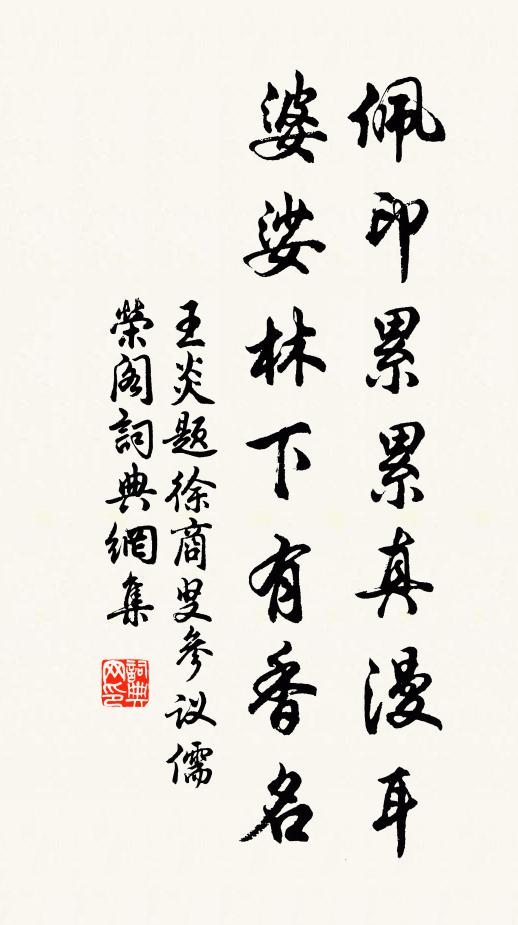 佩印累累真漫耳
婆娑林下有香名
王炎题徐商叟參议儒
荣阁詞典網集
詞典网印